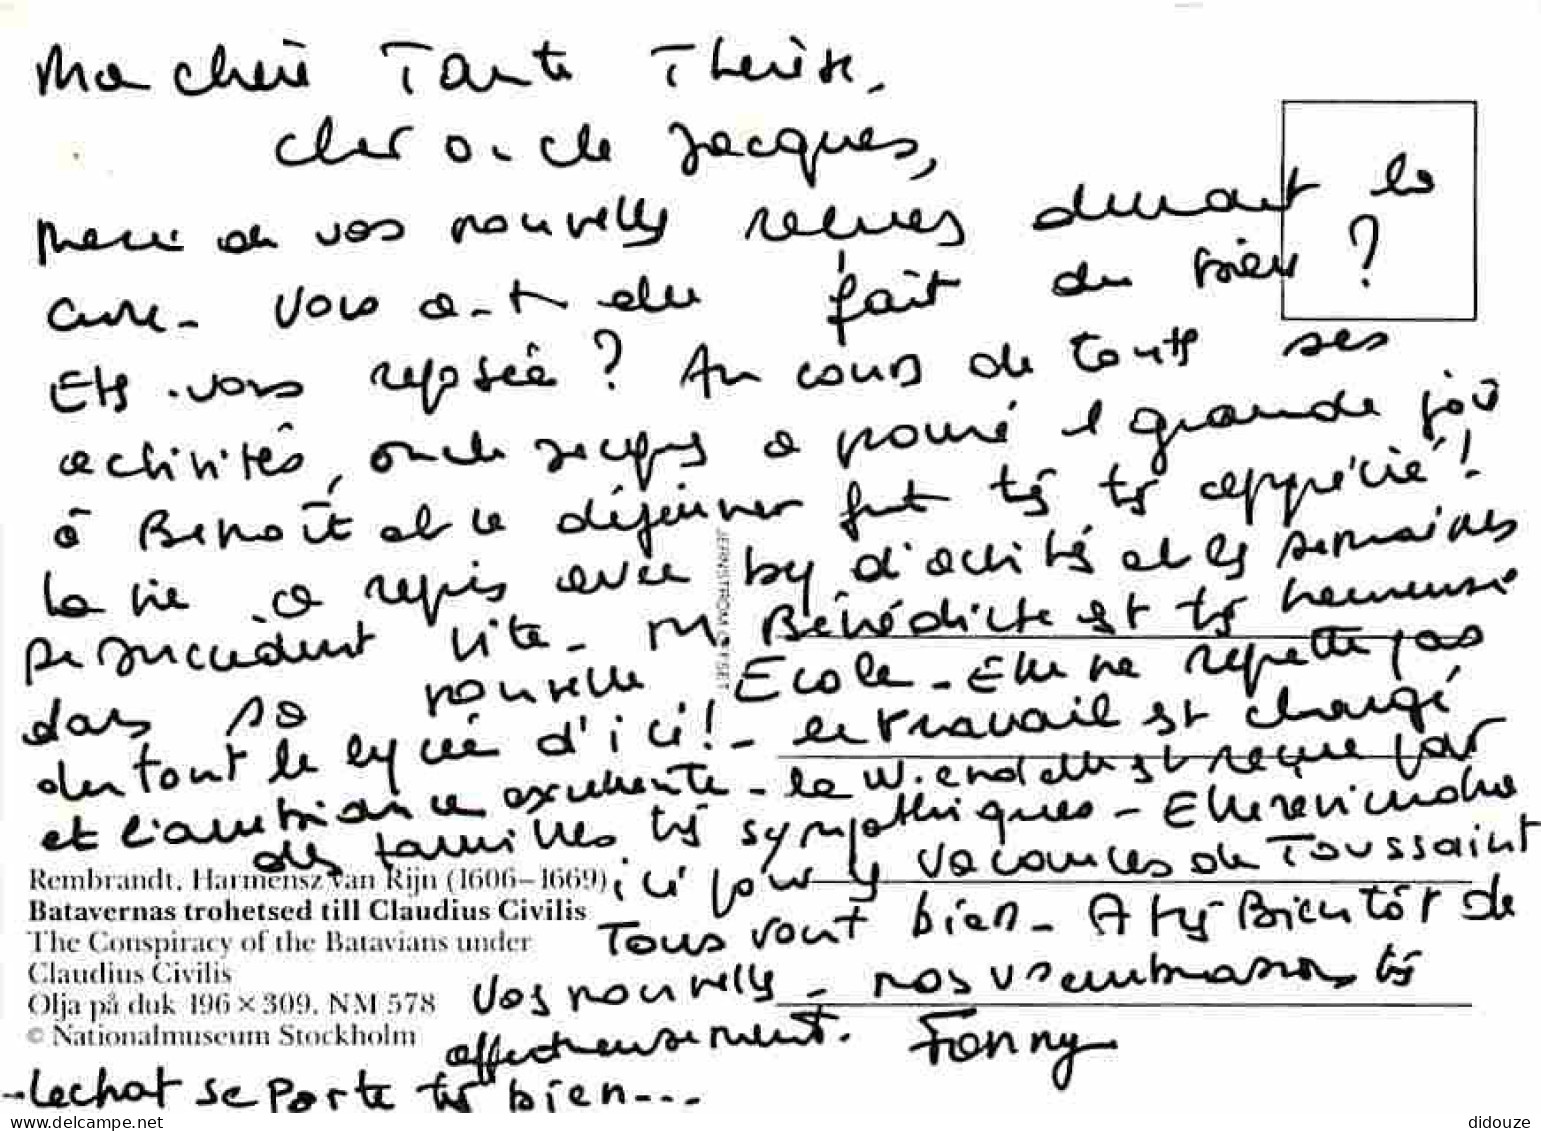 Ma chère Tante Thérèse,
cher oncle Jacques,
Merci de vos nouvelles reçues durant la
cure - Vous a-t-elle fait du bien ?
Etes-vous reposée ? Au cours de toutes ses
activités, oncle Jacques a pour é grande joie
à Benoît et le déjeuner fut ts ts apprécié !
la vie a repris avec bcp d'activités et les semaines
se succèdent vite - M Bénédicte est ts heureuse
dans sa nouvelle Ecole - Elle ne regrette pas
du tout le lycée d'ici ! - le travail est chargé
et l'ambiance excellente - le W.end elle est reçue par
des familles ts sympathiques - Elle reviendra
ici pour les vacances de Toussaint
Tous vont bien - A ts Bientôt de
vos nouvelles - nous vs embrassons ts
affectueusement. Fanny
- Le chat se porte ts bien ---
JERNSTRÖM OFFSET
Rembrandt, Harmensz van Rijn (1606–1669)
Batavernas trohetsed till Claudius Civilis
The Conspiracy of the Batavians under
Claudius Civilis
Olja på duk 196 × 309. NM 578
© Nationalmuseum Stockholm
www.delcampe.net
didouze